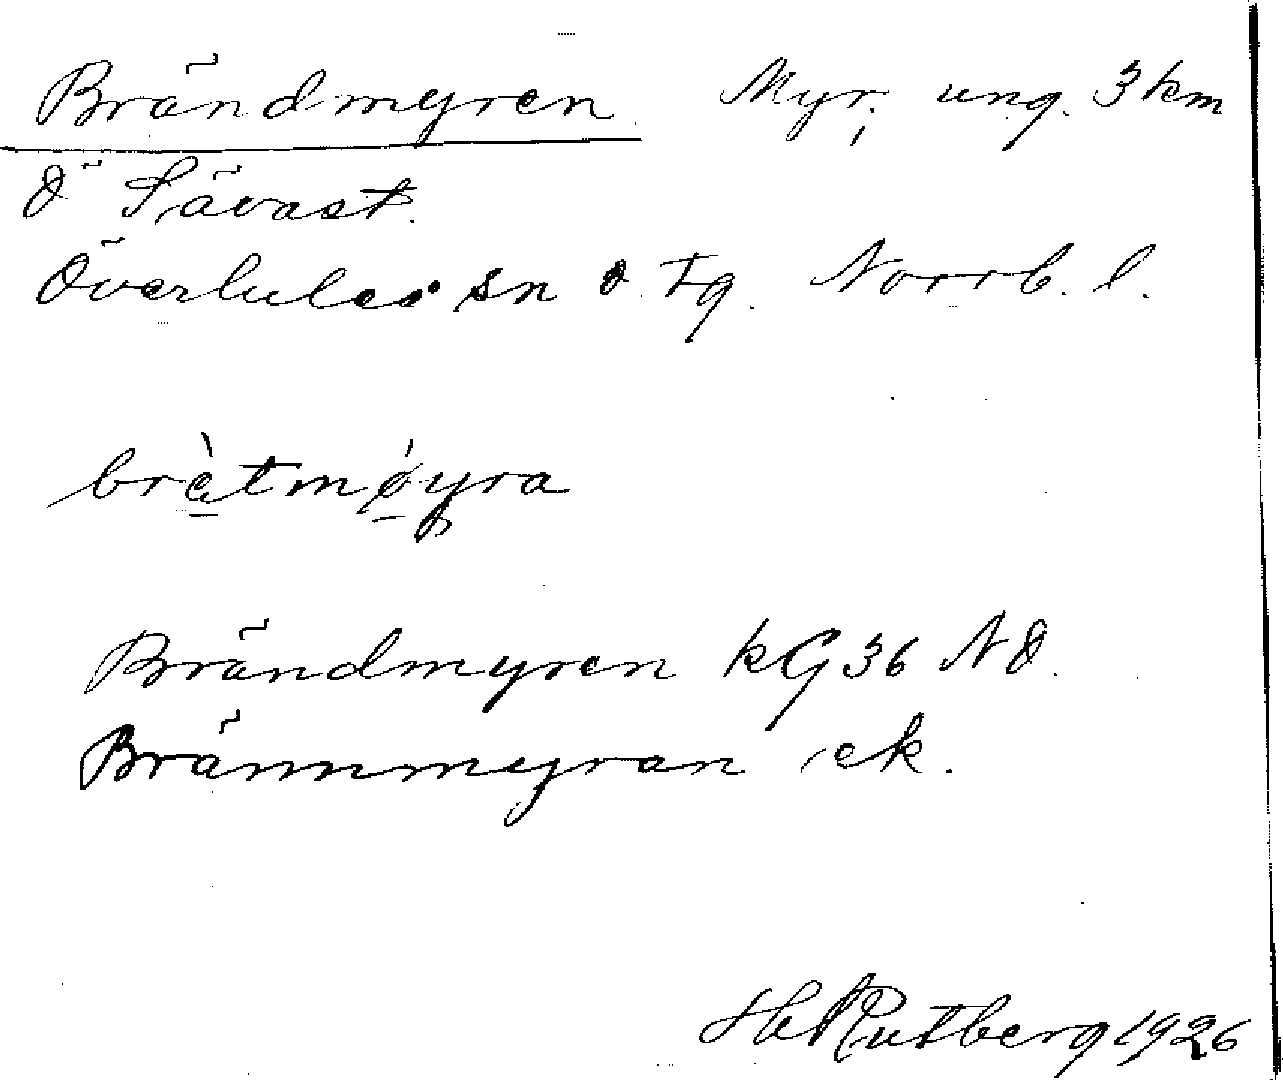 Brändmyren Myr; ung. 3 km
Ö Sävast.
Överluleå sn o. tg. Norrb. l.
brètmǿyra
Brändmyren kG 36 NÖ.
Brännmyran ek.
Rutberg 1926